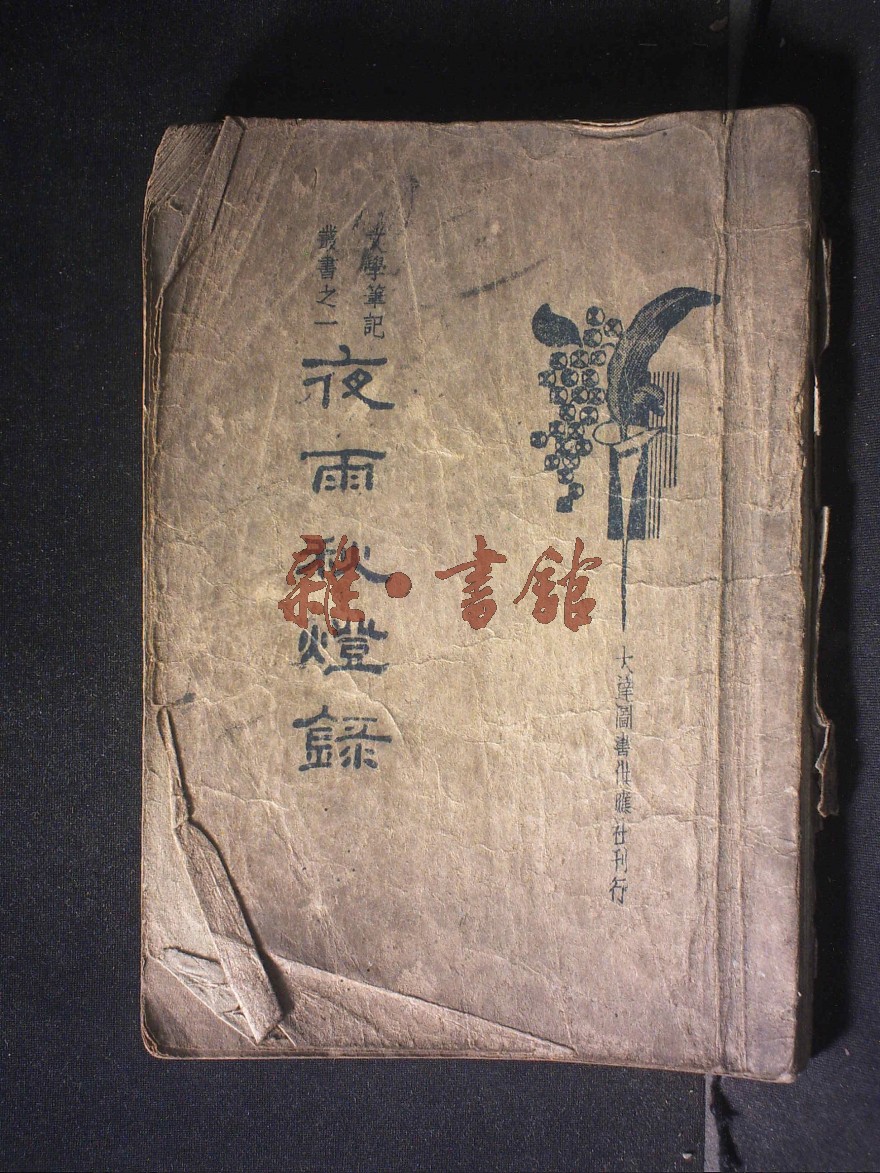 文學筆記
叢書之一
夜雨秋燈録
大達圖書供應社刊行
雜·書館